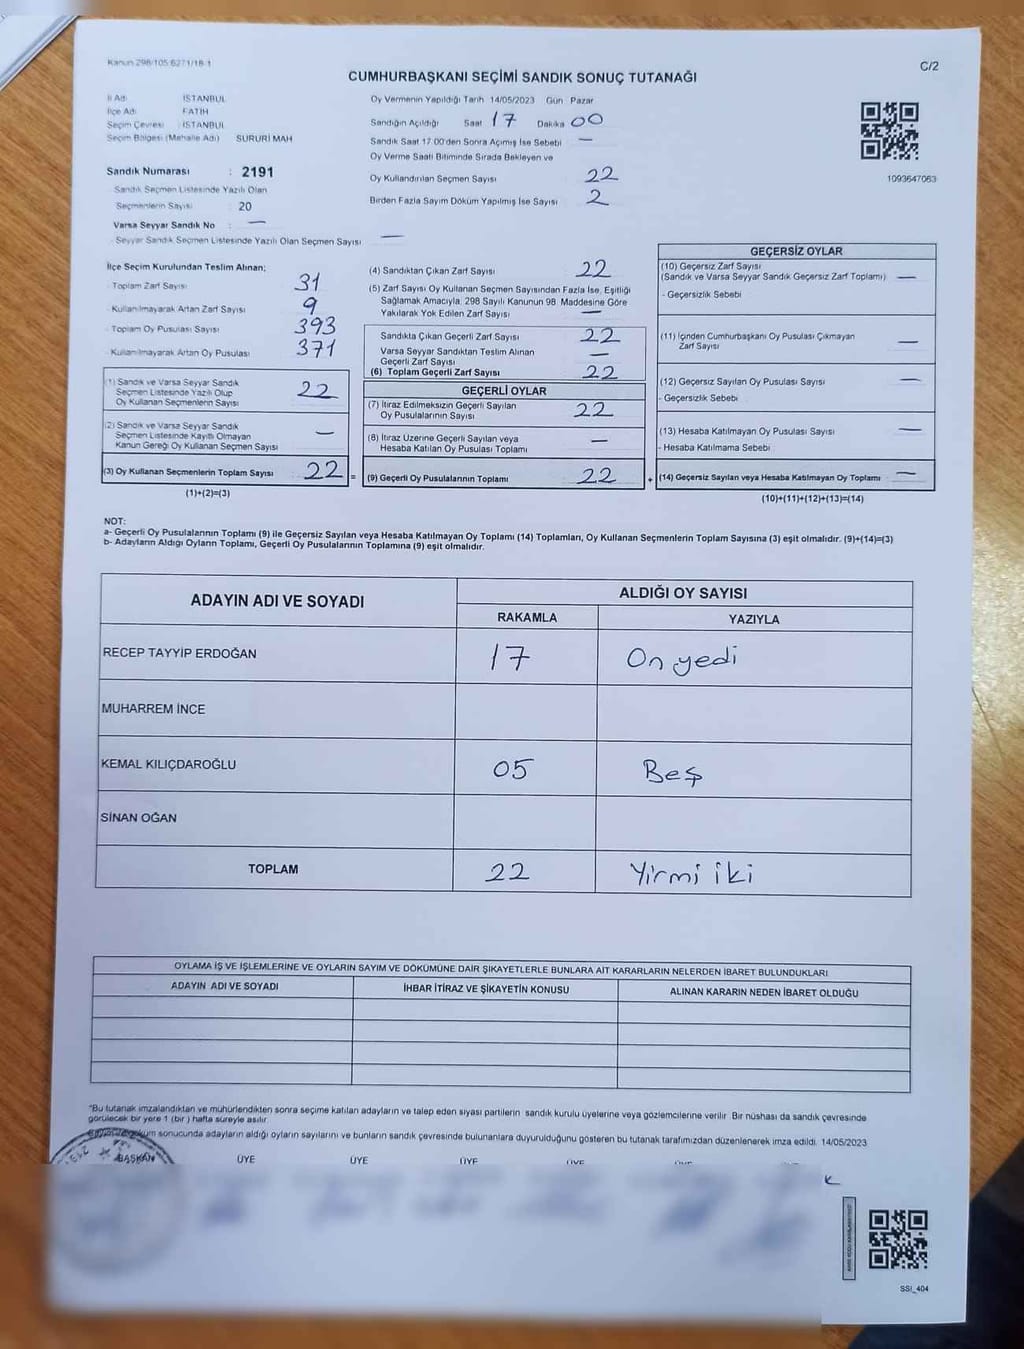 Kanun 298/105 6271/18-1
C/2
CUMHURBAŞKANI SEÇİMİ SANDIK SONUÇ TUTANAĞI
İl Adı : İSTANBUL
İlçe Adı : FATİH
Seçim Çevresi : İSTANBUL
Seçim Bölgesi (Mahalle Adı) : SURURİ MAH
Sandık Numarası : 2191
Sandık Seçmen Listesinde Yazılı Olan
Seçmenlerin Sayısı : 20
Varsa Seyyar Sandık No : —
Seyyar Sandık Seçmen Listesinde Yazılı Olan Seçmen Sayısı —
Oy Vermenin Yapıldığı Tarih 14/05/2023 Gün Pazar
Sandığın Açıldığı Saat 17 Dakika 00
Sandık Saat 17.00'den Sonra Açımış İse Sebebi —
Oy Verme Saati Bitiminde Sırada Bekleyen ve
Oy Kullandırılan Seçmen Sayısı 22
Birden Fazla Sayım Döküm Yapılmış İse Sayısı 2
1093647063
İlçe Seçim Kurulundan Teslim Alınan;
Toplam Zarf Sayısı 31
Kullanılmayarak Artan Zarf Sayısı 9
Toplam Oy Pusulası Sayısı 393
Kullanılmayarak Artan Oy Pusulası 371
(1) Sandık ve Varsa Seyyar Sandık
Seçmen Listesinde Yazılı Olup
Oy Kullanan Seçmenlerin Sayısı 22
(2) Sandık ve Varsa Seyyar Sandık
Seçmen Listesinde Kayıtlı Olmayan
Kanun Gereği Oy Kullanan Seçmen Sayısı —
(3) Oy Kullanan Seçmenlerin Toplam Sayısı 22 =
(1)+(2)=(3)
(4) Sandıktan Çıkan Zarf Sayısı 22
(5) Zarf Sayısı Oy Kullanan Seçmen Sayısından Fazla İse, Eşitliği
Sağlamak Amacıyla, 298 Sayılı Kanunun 98. Maddesine Göre
Yakılarak Yok Edilen Zarf Sayısı —
Sandıkta Çıkan Geçerli Zarf Sayısı 22
Varsa Seyyar Sandıktan Teslim Alınan
Geçerli Zarf Sayısı —
(6) Toplam Geçerli Zarf Sayısı 22
GEÇERLİ OYLAR
(7) İtiraz Edilmeksizin Geçerli Sayılan
Oy Pusulalarının Sayısı 22
(8) İtiraz Üzerine Geçerli Sayılan veya
Hesaba Katılan Oy Pusulası Toplamı —
(9) Geçerli Oy Pusulalarının Toplamı 22 +
GEÇERSİZ OYLAR
(10) Geçersiz Zarf Sayısı
(Sandık ve Varsa Seyyar Sandık Geçersiz Zarf Toplamı) —
- Geçersizlik Sebebi
(11) İçinden Cumhurbaşkanı Oy Pusulası Çıkmayan
Zarf Sayısı —
(12) Geçersiz Sayılan Oy Pusulası Sayısı —
- Geçersizlik Sebebi
(13) Hesaba Katılmayan Oy Pusulası Sayısı —
- Hesaba Katılmama Sebebi
(14) Geçersiz Sayılan veya Hesaba Katılmayan Oy Toplamı —
(10)+(11)+(12)+(13)=(14)
NOT:
a- Geçerli Oy Pusulalarının Toplamı (9) ile Geçersiz Sayılan veya Hesaba Katılmayan Oy Toplamı (14) Toplamları, Oy Kullanan Seçmenlerin Toplam Sayısına (3) eşit olmalıdır. (9)+(14)=(3)
b- Adayların Aldığı Oyların Toplamı, Geçerli Oy Pusulalarının Toplamına (9) eşit olmalıdır.
ADAYIN ADI VE SOYADI
ALDIĞI OY SAYISI
RAKAMLA YAZIYLA
RECEP TAYYİP ERDOĞAN 17 On yedi
MUHARREM İNCE
KEMAL KILIÇDAROĞLU 05 Beş
SİNAN OĞAN
TOPLAM 22 Yirmi iki
OYLAMA İŞ VE İŞLEMLERİNE VE OYLARIN SAYIM VE DÖKÜMÜNE DAİR ŞİKAYETLERLE BUNLARA AİT KARARLARIN NELERDEN İBARET BULUNDUKLARI
ADAYIN ADI VE SOYADI İHBAR İTİRAZ VE ŞİKAYETİN KONUSU ALINAN KARARIN NEDEN İBARET OLDUĞU
*Bu tutanak imzalandıktan ve mühürlendikten sonra seçime katılan adayların ve talep eden siyasi partilerin sandık kurulu üyelerine veya gözlemcilerine verilir. Bir nüshası da sandık çevresinde
görülecek bir yere 1 (bir) hafta süreyle asılır.
sonucunda adayların aldığı oyların sayılarını ve bunların sandık çevresinde bulunanlara duyurulduğunu gösteren bu tutanak tarafımızdan düzenlenerek imza edildi. 14/05/2023
BAŞKAN ÜYE ÜYE ÜYE ÜYE ÜYE
SSI_404